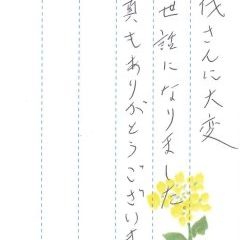 さんに大変
世話になりました
真もありがとうございま